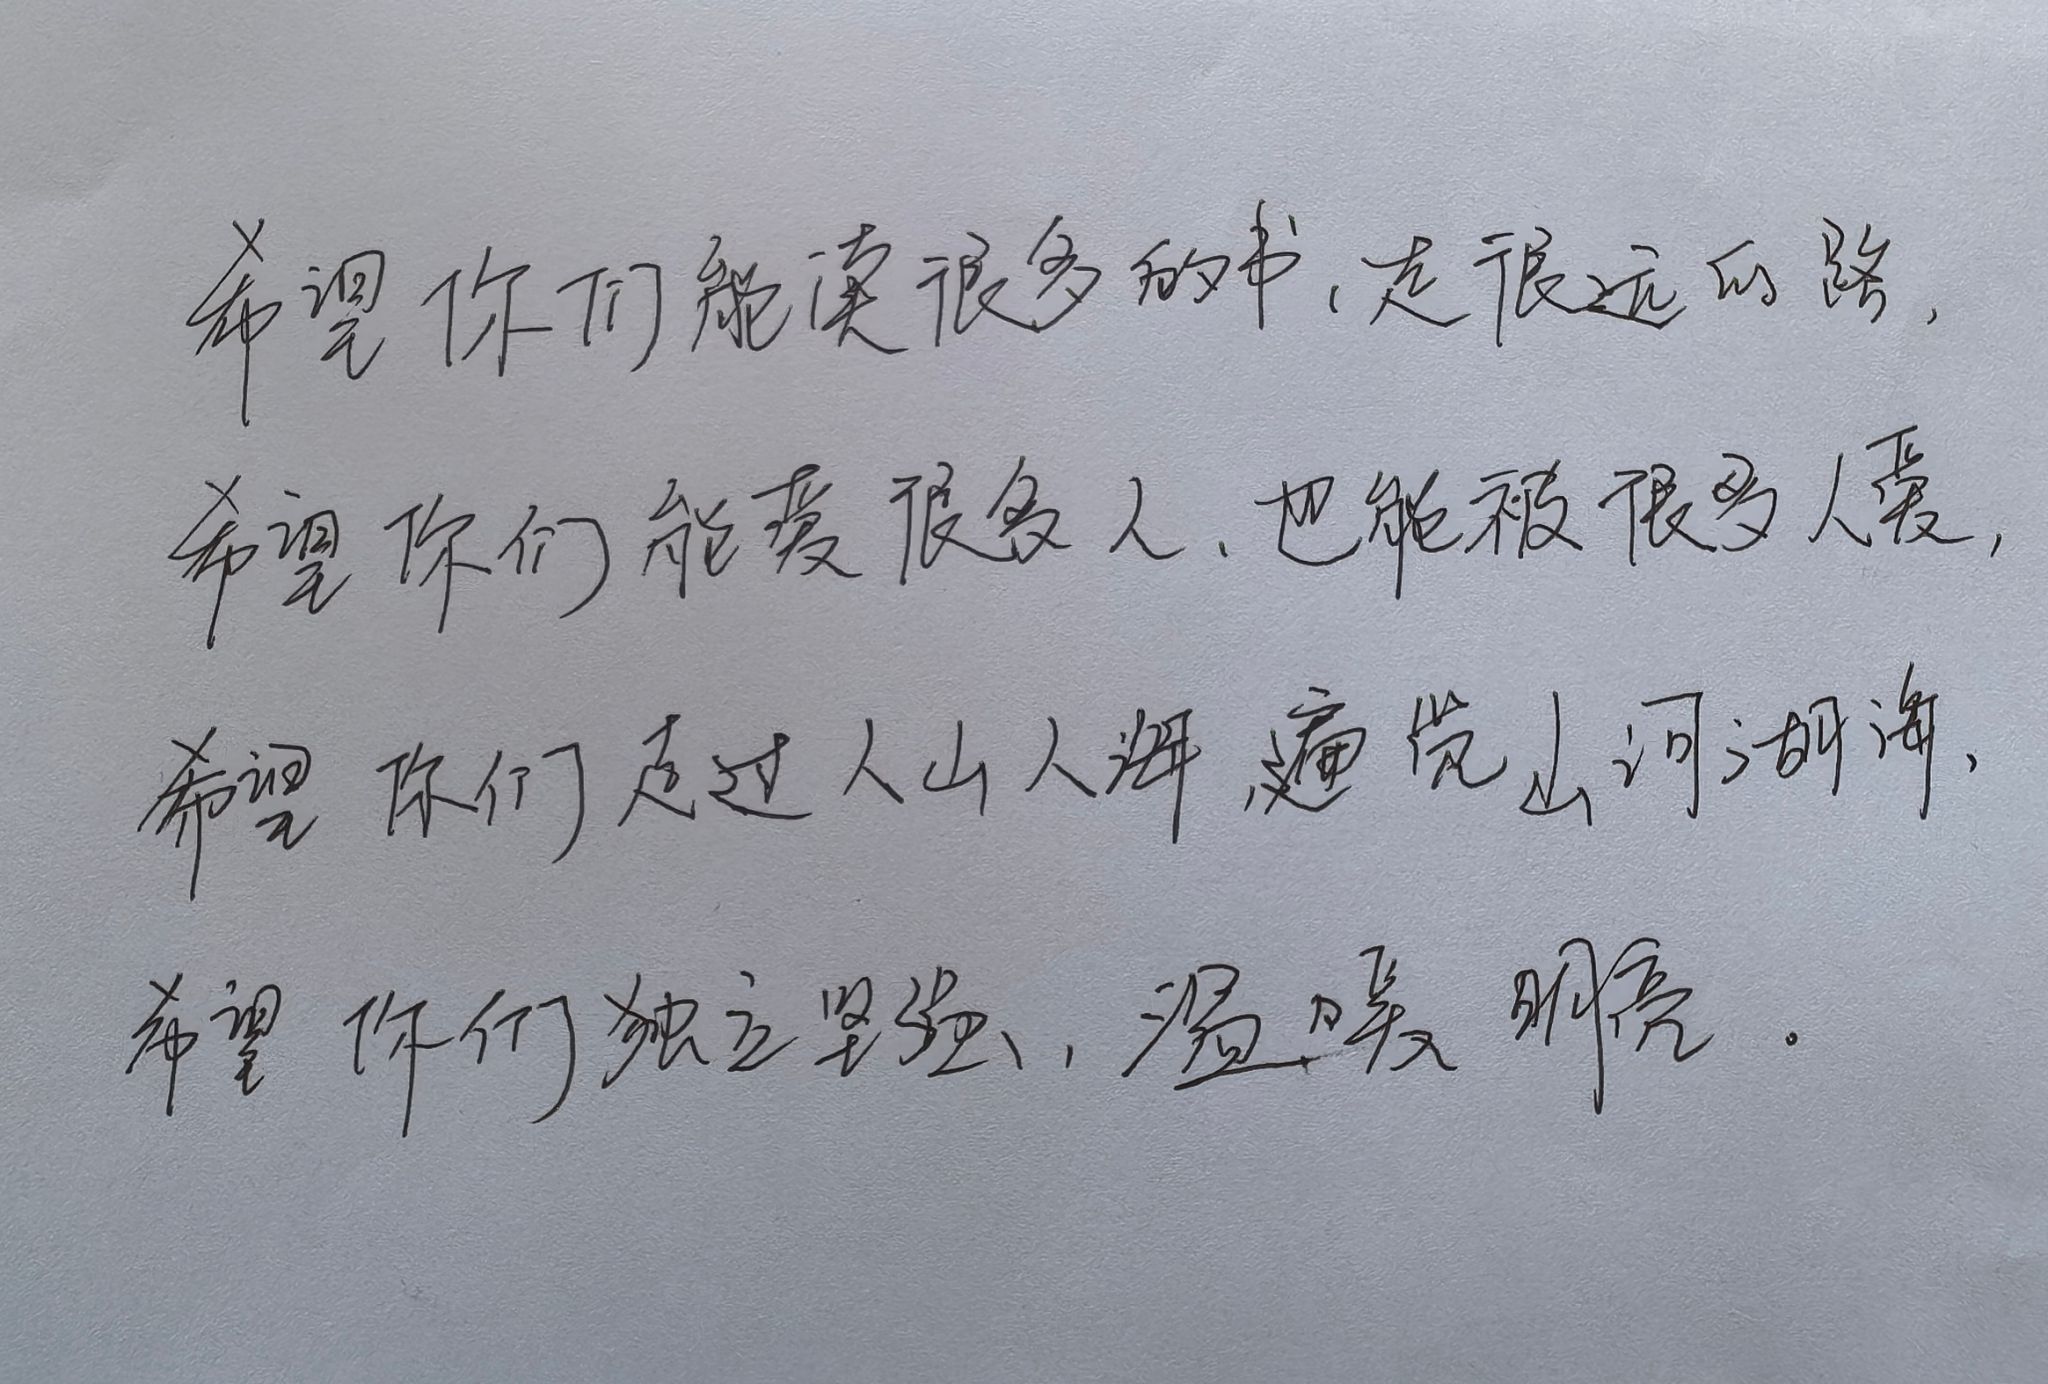 希望你们能读很多的书，走很远的路，
希望你们能爱很多人，也能被很多人爱，
希望你们走过人山人海，遍览山河湖海，
希望你们独立坚强，温暖明亮。